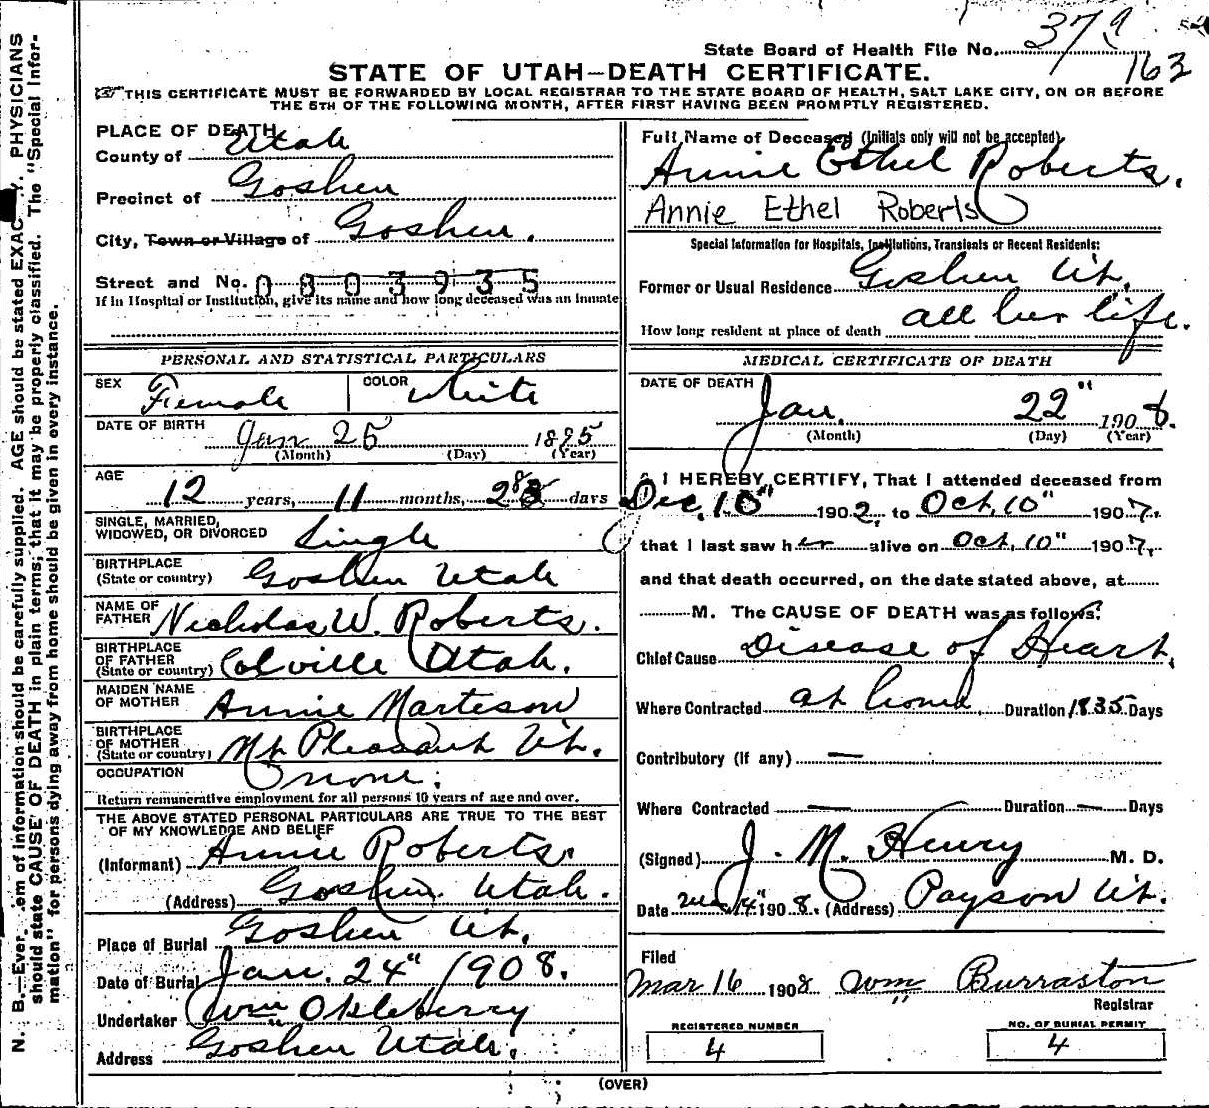 State Board of Health File No. 379
163
STATE OF UTAH—DEATH CERTIFICATE.
THIS CERTIFICATE MUST BE FORWARDED BY LOCAL REGISTRAR TO THE STATE BOARD OF HEALTH, SALT LAKE CITY, ON OR BEFORE
THE 5TH OF THE FOLLOWING MONTH, AFTER FIRST HAVING BEEN PROMPTLY REGISTERED.
PLACE OF DEATH
County of Utah
Precinct of Goshen
City, Town or Village of Goshen.
Street and No. 0803935
If in Hospital or Institution, give its name and how long deceased was an inmate
PERSONAL AND STATISTICAL PARTICULARS
SEX Female COLOR White
DATE OF BIRTH Jan 25 1895
(Month) (Day) (Year)
AGE 12 years, 11 months, 28 days
SINGLE, MARRIED,
WIDOWED, OR DIVORCED Single
BIRTHPLACE
(State or country) Goshen Utah
NAME OF
FATHER Nicholas W. Roberts.
BIRTHPLACE
OF FATHER
(State or country) Colville Utah.
MAIDEN NAME
OF MOTHER Annie Marteson
BIRTHPLACE
OF MOTHER
(State or country) Mt Pleasant Ut.
OCCUPATION none.
Return remunerative employment for all persons 10 years of age and over.
THE ABOVE STATED PERSONAL PARTICULARS ARE TRUE TO THE BEST
OF MY KNOWLEDGE AND BELIEF
(Informant) Annie Roberts.
(Address) Goshen. Utah.
Place of Burial Goshen Ut.
Date of Burial Jan. 24" 1908.
Undertaker Wm Okleberry
Address Goshen Utah.
Full Name of Deceased (Initials only will not be accepted)
Annie Ethel Roberts.
Annie Ethel Roberts
Special Information for Hospitals, Institutions, Transients or Recent Residents:
Former or Usual Residence Goshen Ut.
How long resident at place of death all her life.
MEDICAL CERTIFICATE OF DEATH
DATE OF DEATH
Jan. 22" 1908.
(Month) (Day) (Year)
I HEREBY CERTIFY, That I attended deceased from
Dec. 10" 1902, to Oct. 10" 1907.
that I last saw her alive on Oct. 10" 1907,
and that death occurred, on the date stated above, at
M. The CAUSE OF DEATH was as follows:
Chief Cause Disease of Heart.
Where Contracted at home. Duration 1835 Days
Contributory (If any) —
Where Contracted — Duration — Days
(Signed) J. M. Henry M. D.
Date 14" 1908. (Address) Payson Ut.
Filed
Mar 16 1908 Wm Burraston
Registrar
REGISTERED NUMBER
4
NO. OF BURIAL PERMIT
4
(OVER)
N. B.—Every item of information should be carefully supplied. AGE should be stated EXACTLY. PHYSICIANS
should state CAUSE OF DEATH in plain terms, that it may be properly classified. The "Special Infor-
mation" for persons dying away from home should be given in every instance.